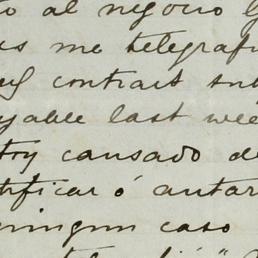 to al negocio
me telegrafi
contract sub
yable last wee
toy causado de
tificar ó autor
ningun caso